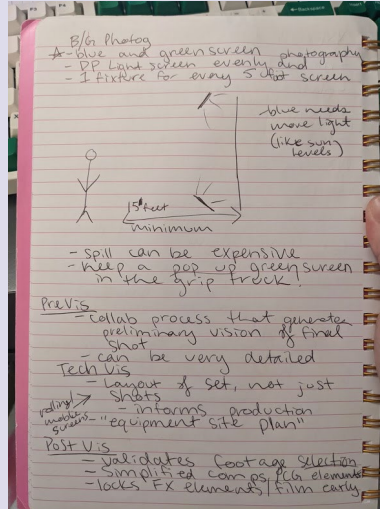 B/G Photog
☆ - blue and greenscreen photography
- DP Light screen evenly and
- 1 fixture for every 5 foot screen
blue needs
more light
(like sun
levels)
15 feet
minimum
- spill can be expensive
- keep a pop up greenscreen
in the grip truck!
PreVis
- collab process that generates
preliminary vision of final
shot
- can be very detailed
Tech Vis
- Layout of set, not just
shots
rolling/
mobile
screens
- informs production
- "equipment site plan"
Post Vis
- validates footage selection
- simplified comps/CG elements
- locks FX elements/film early